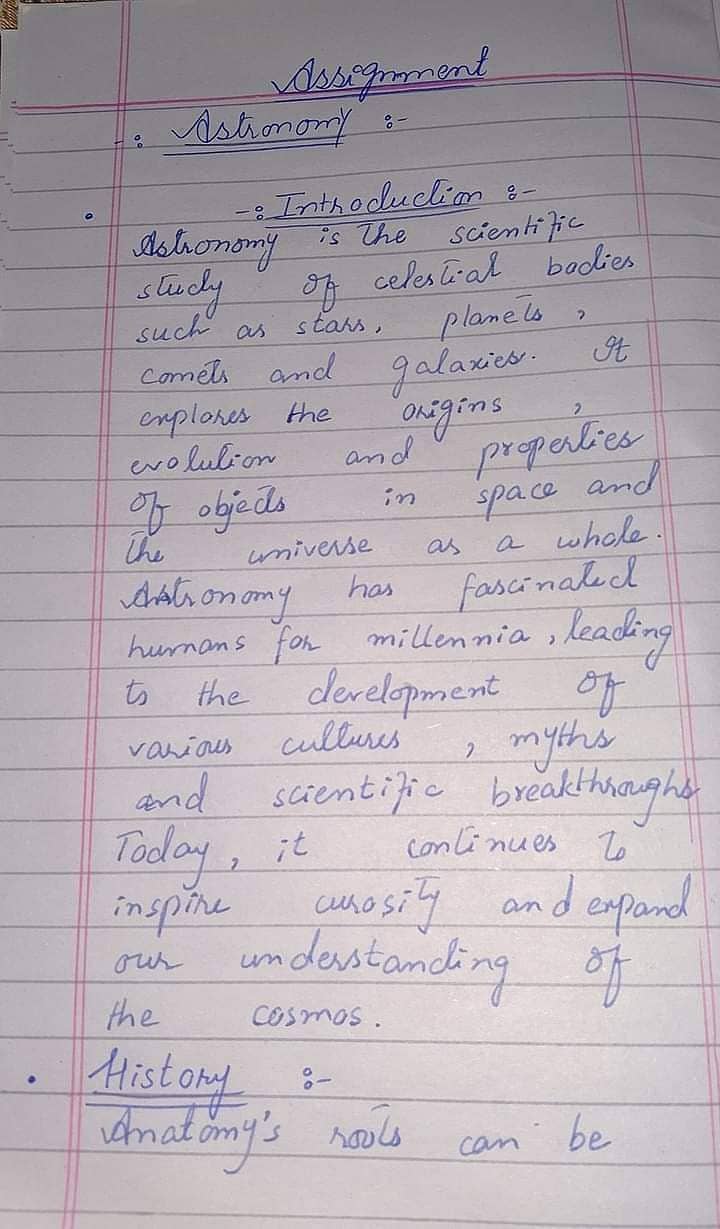 Assignment
-: Astronomy :-
• -: Introduction :-
Astronomy is the scientific
study of celestial bodies
such as stars, planets,
comets and galaxies. It
explores the origins,
evolution and properties
of objects in space and
the universe as a whole.
Astronomy has fascinated
humans for millennia, leading
to the development of
various cultures, myths
and scientific breakthroughs
Today, it continues to
inspire curosity and expand
our understanding of
the cosmos.
• History :-
Anatomy's roots can be